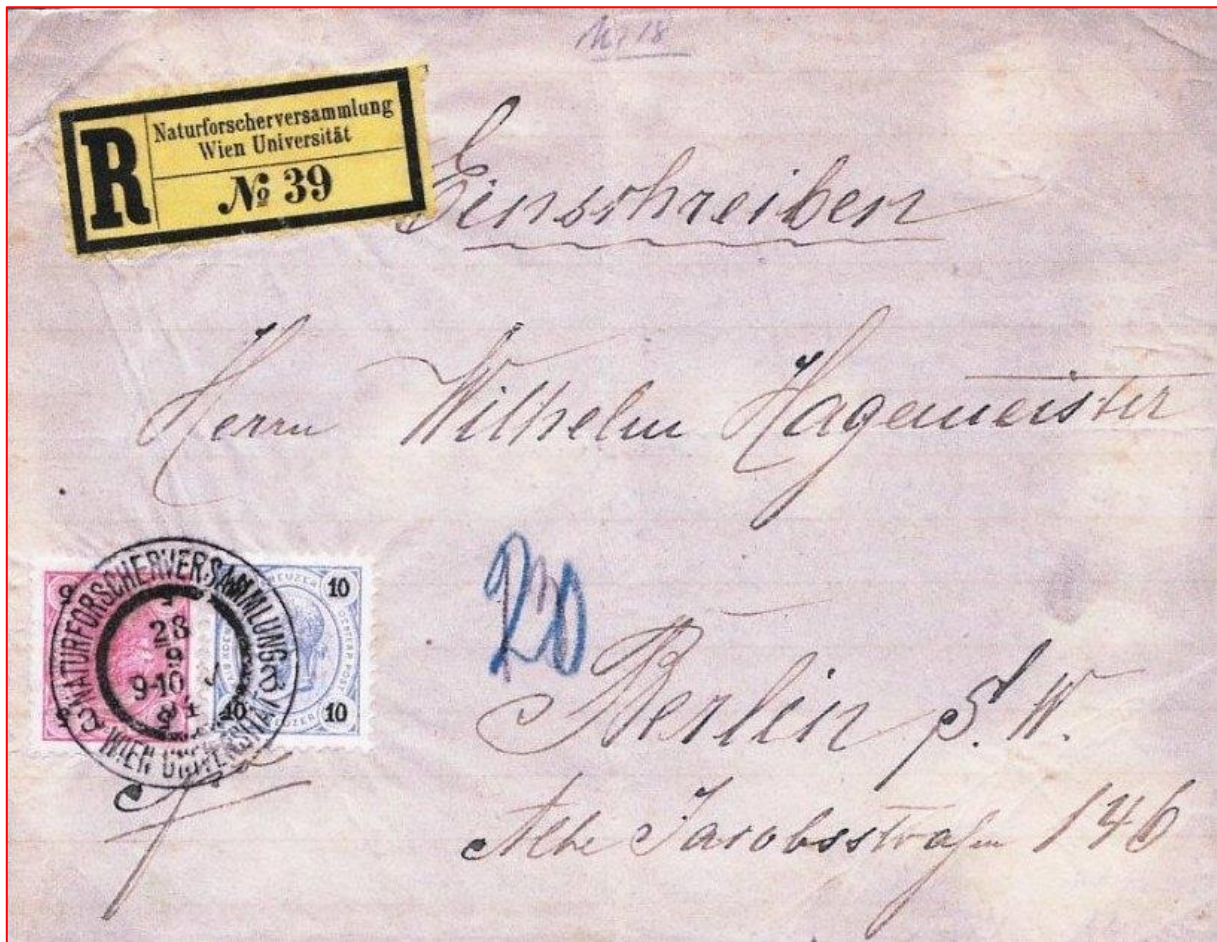 R
Naturforscherversammlung
Wien Universität
№ 39
Einschreiben
Herrn Wilhelm Hagemeister
NATURFORSCHERVERSAMMLUNG
28
9
9-10 V
94
WIEN UNIVERSITÄT
KREUZER
10
10
10
KREUZER
Berlin S. W.
Alte Jacobsstraßen 146